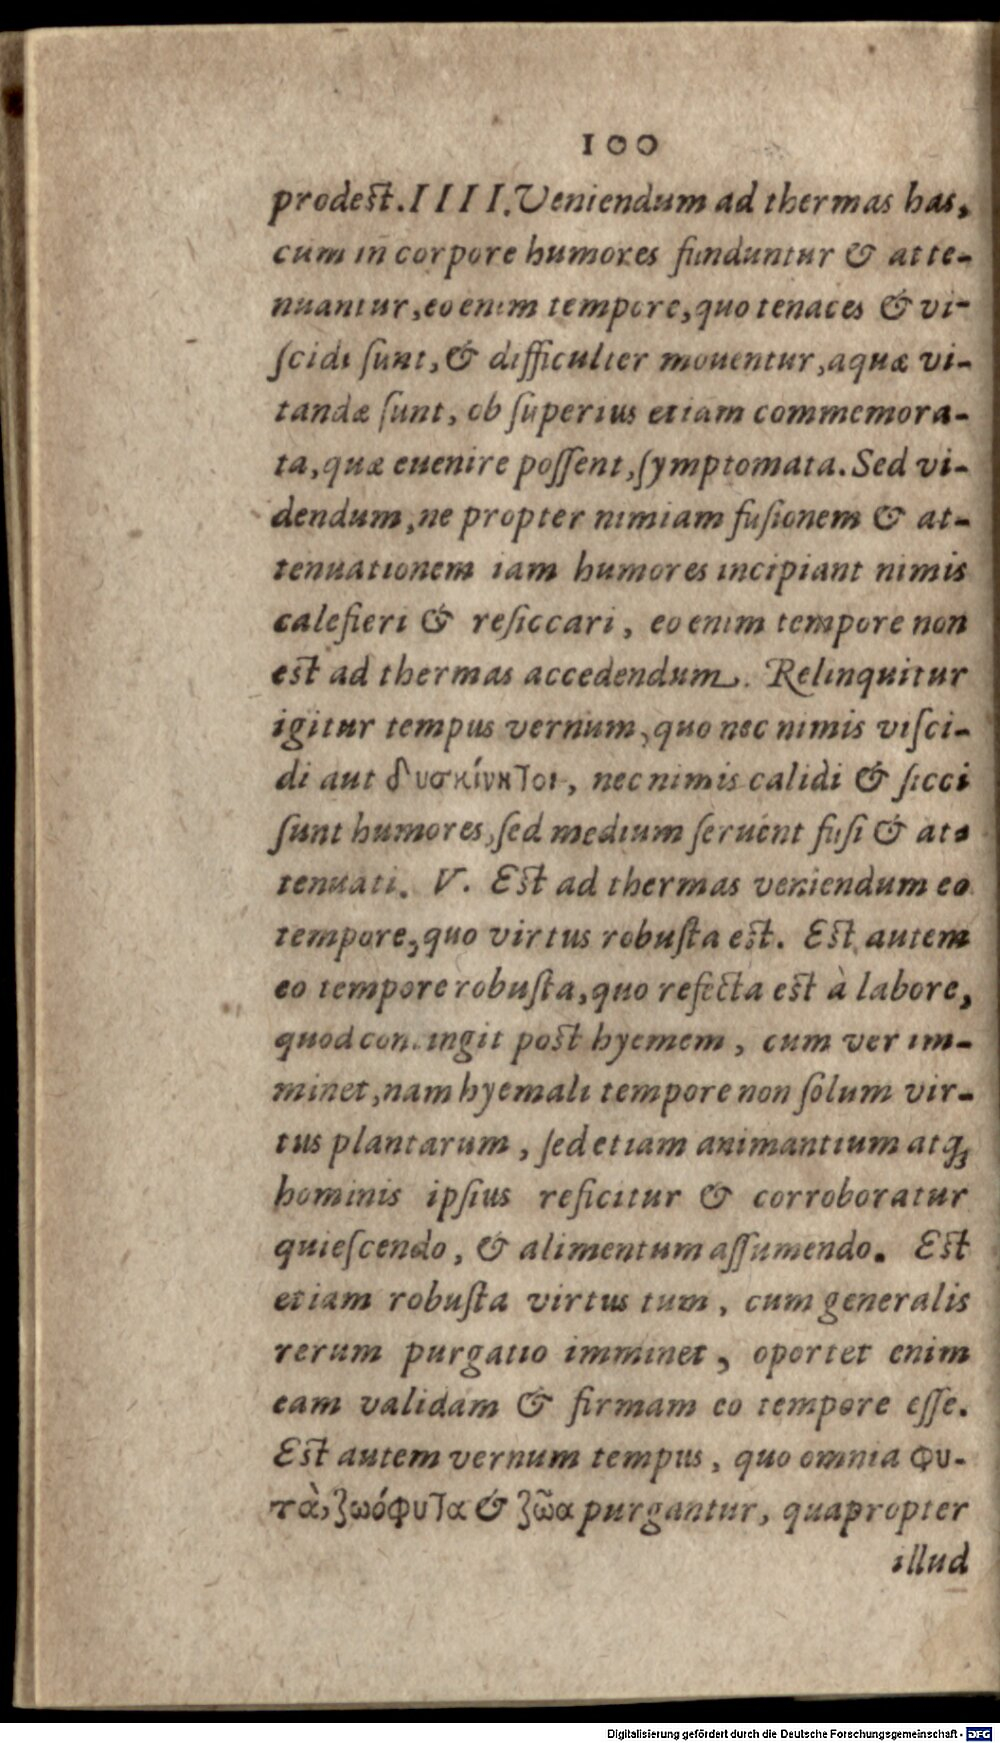 100
prodest. IIII. Veniendum ad thermas has,
cum in corpore humores funduntur & atte-
nuantur, eo enim tempore, quo tenaces & vi-
ſcidi ſunt, & difficulter mouentur, aquæ vi-
tandæ ſunt, ob ſuperius etiam commemora-
ta, quæ euenire poſſent, ſymptomata. Sed vi-
dendum, ne propter nimiam fuſionem & at-
tenuationem iam humores incipiant nimis
calefieri & reſiccari, eo enim tempore non
est ad thermas accedendum. Relinquitur
igitur tempus vernum, quo nec nimis viſci-
di aut δυσκίνητοι, nec nimis calidi & ſicci
ſunt humores, ſed medium ſeruent fuſi & at-
tenuati. V. Est ad thermas veniendum eo
tempore, quo virtus robuſta est. Est autem
eo tempore robuſta, quo refecta est à labore,
quod contingit post hyemem, cum ver im-
minet, nam hyemali tempore non ſolum vir-
tus plantarum, ſed etiam animantium atq;
hominis ipſius reficitur & corroboratur
quieſcendo, & alimentum aſſumendo. Est
etiam robuſta virtus tum, cum generalis
rerum purgatio imminet, oportet enim
eam validam & firmam eo tempore eſſe.
Est autem vernum tempus, quo omnia φυ-
τὰ, ζωόφυτα & ζῶα purgantur, quapropter
illud
Digitalisierung gefördert durch die Deutsche Forschungsgemeinschaft - DFG